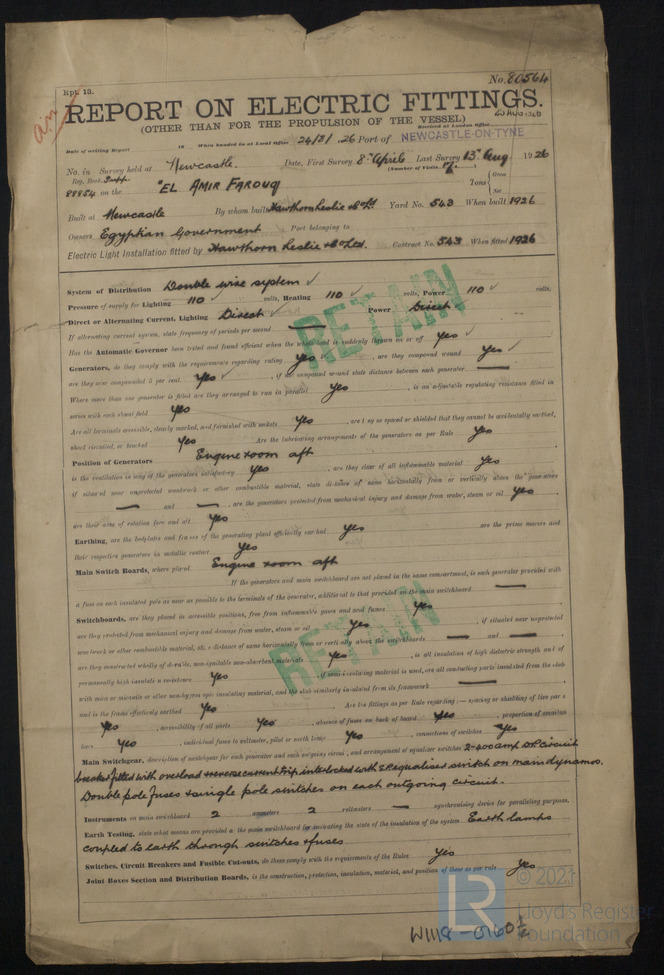 Rpt. 13.
No. 80564
REPORT ON ELECTRIC FITTINGS.
(OTHER THAN FOR THE PROPULSION OF THE VESSEL)
Received at London Office
Date of writing Report 19 When handed in at Local Office 24/8/ .26 Port of NEWCASTLE-ON-TYNE
No. in Survey held at Newcastle. Date, First Survey 8th April Last Survey 13th Aug 1926
Reg. Book. Supp. (Number of Visits 7.)
88854 on the "EL AMIR FAROUQ Tons { Gross
Net
Built at Newcastle By whom built Hawthorn Leslie & Co Ld Yard No. 543 When built 1926
Owners Egyptian Government Port belonging to
Electric Light Installation fitted by Hawthorn Leslie & Co Ltd. Contract No. 543 When fitted 1926
System of Distribution Double wire system ✓
Pressure of supply for Lighting 110 ✓ volts, Heating 110 ✓ volts, Power 110 ✓ volts.
Direct or Alternating Current, Lighting Direct ✓ Power Direct ✓
If alternating current system, state frequency of periods per second —
Has the Automatic Governor been tested and found efficient when the whole load is suddenly thrown on or off yes ✓
Generators, do they comply with the requirements regarding rating yes ✓, are they compound wound yes ✓
are they over compounded 5 per cent. yes ✓, if not compound wound state distance between each generator —
Where more than one generator is fitted are they arranged to run in parallel yes, is an adjustable regulating resistance fitted in
series with each shunt field yes
Are all terminals accessible, clearly marked, and furnished with sockets yes, are they so spaced or shielded that they cannot be accidentally earthed,
short circuited, or touched yes Are the lubricating arrangements of the generators as per Rule yes
Position of Generators Engine room aft
is the ventilation in way of the generators satisfactory yes, are they clear of all inflammable material yes
if situated near unprotected woodwork or other combustible material, state distance of same horizontally from or vertically above the generators
— and —, are the generators protected from mechanical injury and damage from water, steam or oil yes,
are their axes of rotation fore and aft yes
Earthing, are the bedplates and frames of the generating plant efficiently earthed yes are the prime movers and
their respective generators in metallic contact yes
Main Switch Boards, where placed Engine room aft
If the generators and main switchboard are not placed in the same compartment, is each generator provided with
a fuse on each insulated pole as near as possible to the terminals of the generator, additional to that provided on the main switchboard —
Switchboards, are they placed in accessible positions, free from inflammable gases and acid fumes yes
are they protected from mechanical injury and damage from water, steam or oil yes, if situated near unprotected
woodwork or other combustible material, state distance of same horizontally from or vertically above the switchboards — and —
are they constructed wholly of durable, non-ignitable non-absorbent materials yes, is all insulation of high dielectric strength and of
permanently high insulation resistance yes, if semi-insulating material is used, are all conducting parts insulated from the slab
with mica or micanite or other non-hygroscopic insulating material, and the slab similarly insulated from its framework —,
and is the frame effectively earthed yes Are the fittings as per Rule regarding :— spacing or shielding of live parts
yes, accessibility of all parts yes, absence of fuses on back of board yes, proportion of omnibus
bars yes, individual fuses to voltmeter, pilot or earth lamp yes, connections of switches yes
Main Switchgear, description of switchgear for each generator and each outgoing circuit, and arrangement of equaliser switches 2-400 amp D.P. circuit
breaker fitted with overload & reverse current trip interlocked with 2P. equaliser switch on main dynamos.
Double pole fuses & single pole switches on each outgoing circuit.
Instruments on main switchboard 2 ammeters 2 voltmeters — synchronising device for paralleling purposes.
Earth Testing, state what means are provided at the main switchboard for indicating the state of the insulation of the system Earth lamps
coupled to earth through switches & fuses
Switches, Circuit Breakers and Fusible Cut-outs, do these comply with the requirements of the Rules yes
Joint Boxes Section and Distribution Boards, is the construction, protection, insulation, material, and position of these as per rule yes
RETAIN
RETAIN
© 2021
LR
Lloyd's Register
Foundation
W1118-0160 1/2